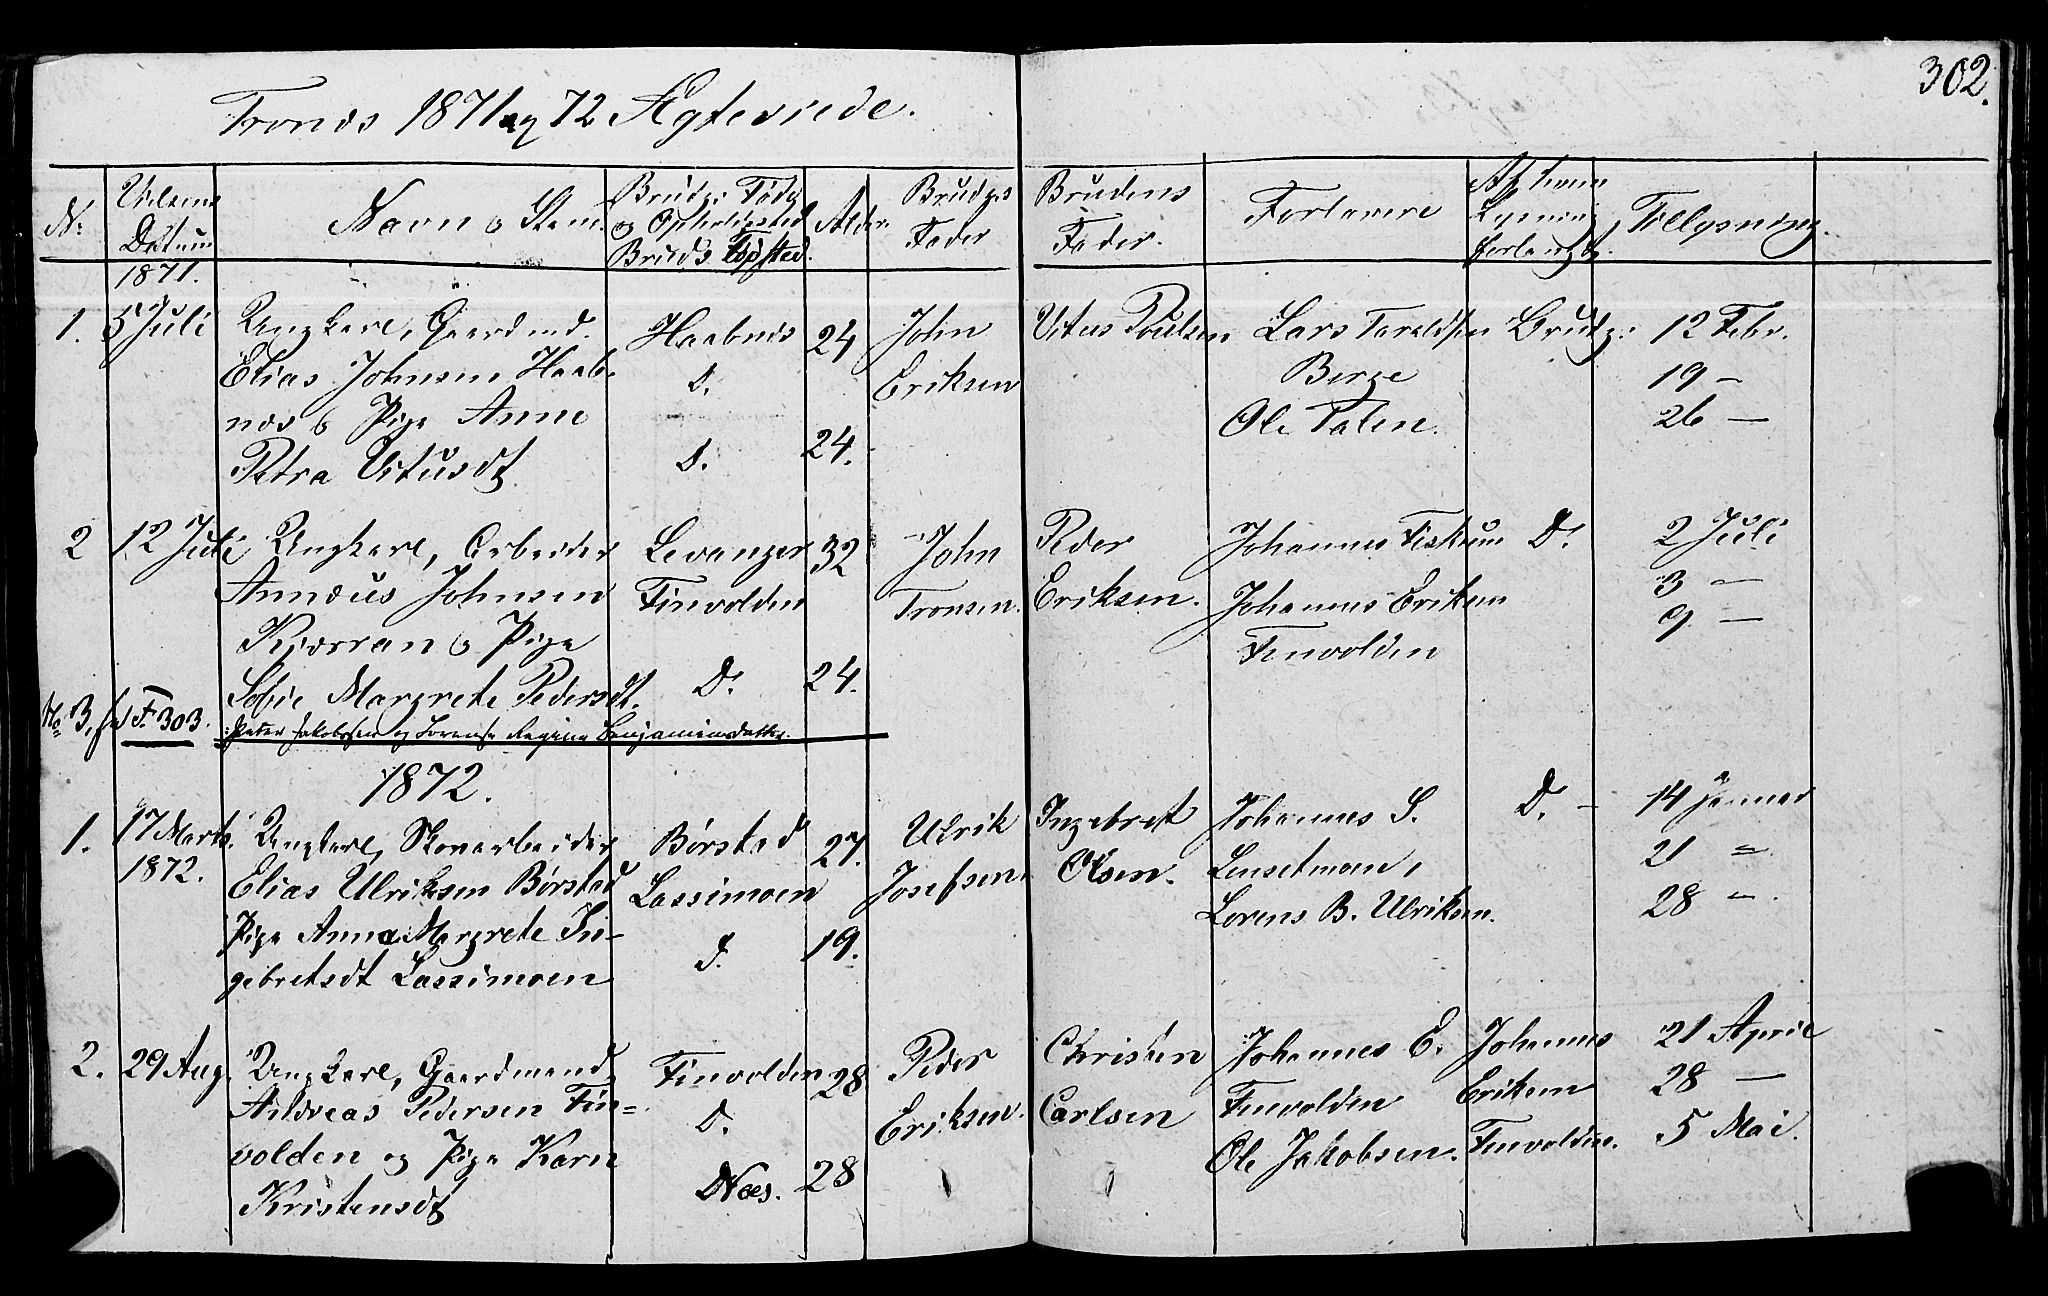 302.
Tronæs 1871 og 72 Ægteviede.
No Vielsens Datum
Navn & Stan
Brudg: Føde
og Opholdssted
Bruds Fødsted.
Alder.
Brudgs Fader
Brudens Fader.
Forlovere
Af hvem Lysning forlangt.
Tillysning.
1871.
1. 5 Juli Ungkarl, Gaardmd. Haabnæs 24 John Vitus Poulsen Lars Taraldsen Brudg: 12 Febr.
Elias Johnsen Haab- D. Eriksen Berge 19 —
næs & Pige Anne Ole 26 —
Petra Vitusdt. D. 24.
2 12 Juli Ungkarl, Arbeider Levanger 32 John Peder Johannes Fiskum D. 2 Juli
Annæus Johnsen Finvolden Tronsen. Eriksen. Johannes Eriksen 3 —
Kjærran & Pige Finvolden 9 —
Sofie Margrete Pedersdt. D. 24.
No 3, see F. 303. Peter Jakobsen og Lorense Regine Benjaminsdatter.
1872.
1. 17 Marts. Ungkarl, Skovarbeider Børstad 27. Ulrik Ingebret Johannes S. D. — 14 Januar
1872. Elias Ulriksen Børstad Lassimoen Josefsen. Olsen. Lensetmoen, 21 —
Pige Anna Margrete In- Lorens B. Ulriksen. 28 —.
gebretsdt Lassimoen D. 19.
2. 29 Aug. Ungkarl, Gaardmand Finvolden 28 Peder Christen Johannes E. Johannes 21 April
Andreas Pedersen Fin- D. Eriksen. Carlsen Finvolden Eriksen 28 —
volden og Pige Karn Næs. 28 Ole Jakobsen. Finvolden. 5 Mai.
Kristensdt